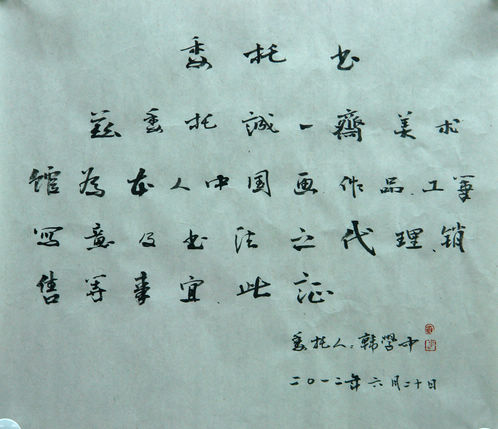 委托书
兹委托誠一齋美术
馆為本人中国画作品、工筆、
写意及书法之代理、销
售等事宜.此证
委托人:韩學中
二〇一二年六月二十日